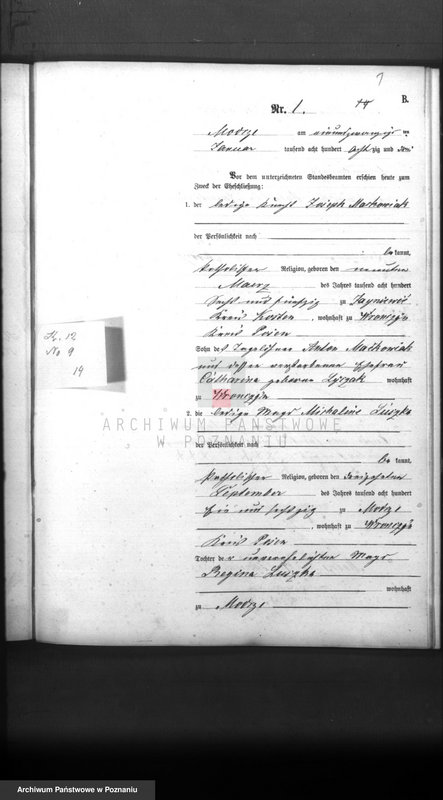 1
B.
Nr. 1.
Modrze am neunundzwanzigsten
Januar tausend acht hundert achtzig und
Vor dem unterzeichneten Standesbeamten erschien heute zum
Zweck der Eheschließung:
1. der ledige Knecht Joseph Maćkowiak
der Persönlichkeit nach
be kannt,
katholischer Religion, geboren den neunten
Maerz des Jahres tausend acht hundert
sechs und fünfzig zu
Kreis Kosten, wohnhaft zu Wronczyn
Kreis Posen
Sohn des Tagelöhner Anton Maćkowiak
und dessen verstorbene Ehefrau
Catharina geborene wohnhaft
zu Wronczyn
2. die ledige Magd Michalina Luszka
der Persönlichkeit nach
be kannt,
katholischer Religion, geboren den dreizehnten
September des Jahres tausend acht hundert
und sechszig zu Modrze
, wohnhaft zu Wronczyn
Kreis Posen
Tochter der unverehelichten Magd
Regina Luszka
wohnhaft
zu Modrze
Kr. 12
No 9
14
ARCHIWUM PAŃSTWOWE
W POZNANIU
Archiwum Państwowe w Poznaniu